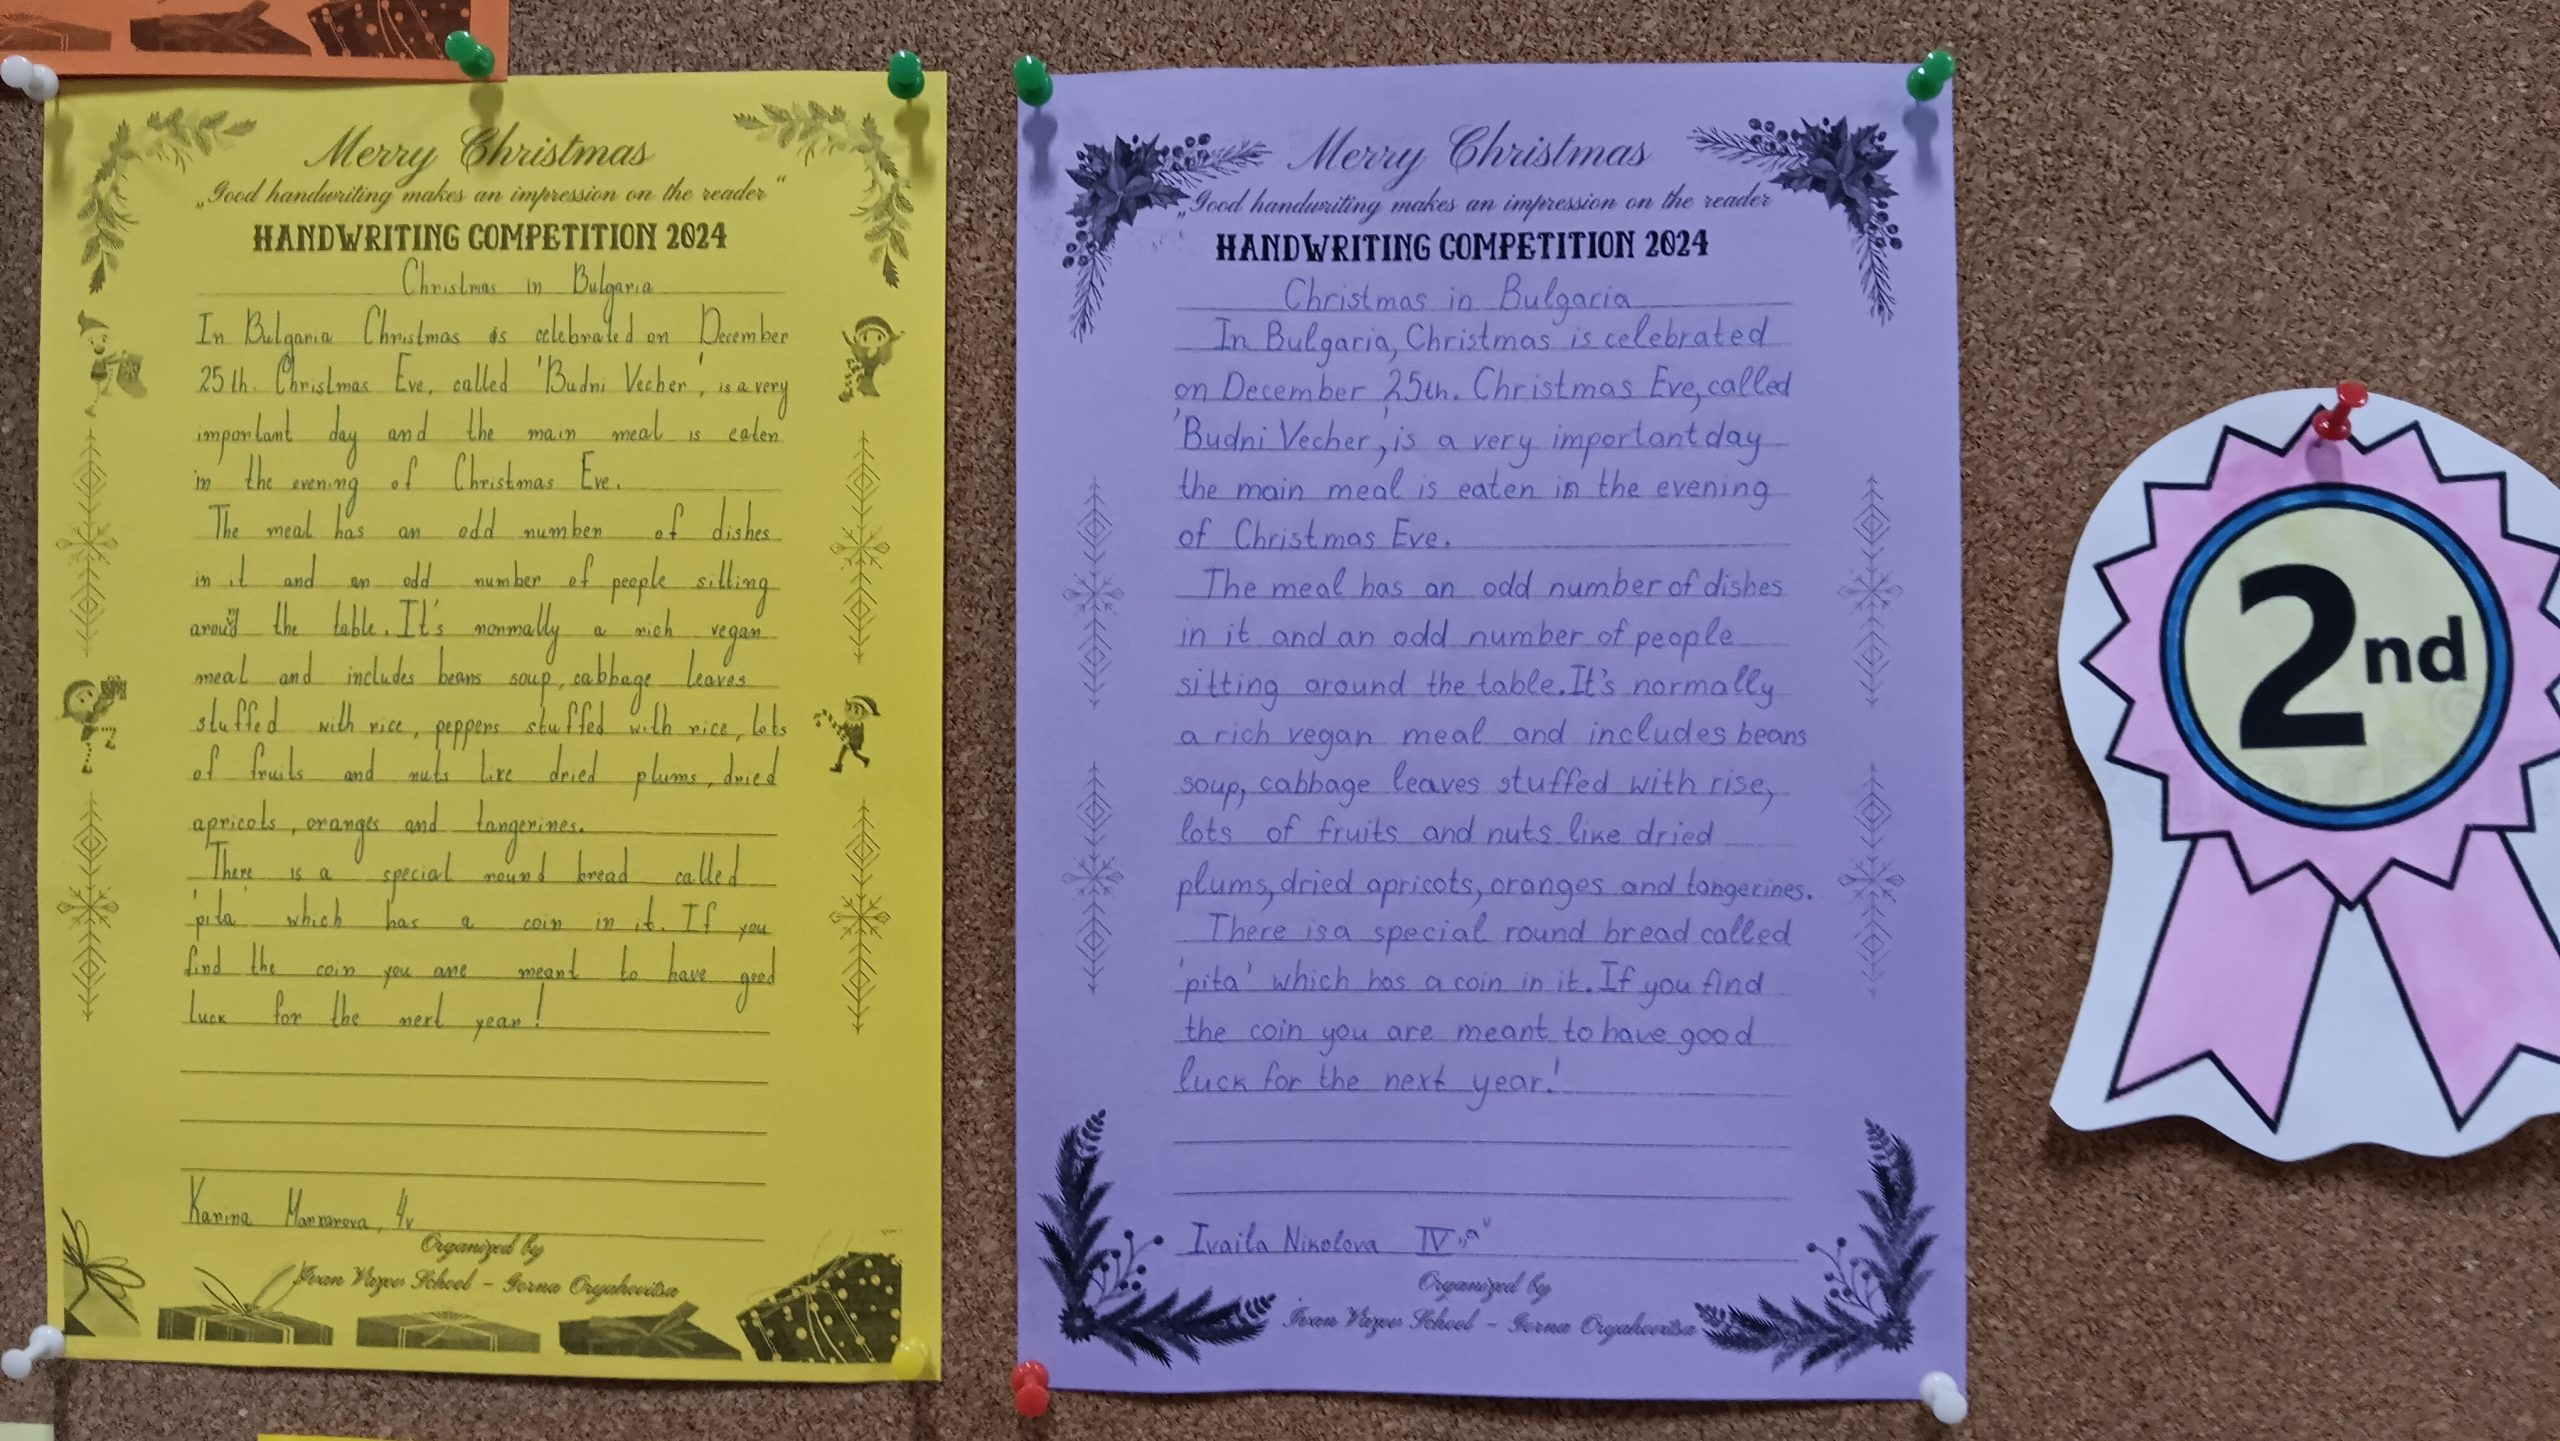 Merry Christmas
„Good handwriting makes an impression on the reader“
HANDWRITING COMPETITION 2024
Christmas in Bulgaria
In Bulgaria Christmas is celebrated on December
25th. Christmas Eve, called 'Budni Vecher', is a very
important day and the main meal is eaten
in the evening of Christmas Eve.
The meal has an odd number of dishes
in it and an odd number of people sitting
around the table. It's normally a rich vegan
meal and includes beans soup, cabbage leaves
stuffed with rice, peppers stuffed with rice, lots
of fruits and nuts like dried plums, dried
apricots, oranges and tangerines.
There is a special round bread called
'pita' which has a coin in it. If you
find the coin you are meant to have good
luck for the next year!
Karina 4v
Organized by
Ivan Vazov School - Gorna Oryahovitsa
Merry Christmas
„Good handwriting makes an impression on the reader
HANDWRITING COMPETITION 2024
Christmas in Bulgaria
In Bulgaria, Christmas is celebrated
on December 25th. Christmas Eve, called
'Budni Vecher', is a very important day
the main meal is eaten in the evening
of Christmas Eve.
The meal has an odd number of dishes
in it and an odd number of people
sitting around the table. It's normally
a rich vegan meal and includes beans
soup, cabbage leaves stuffed with rise,
lots of fruits and nuts like dried
plums, dried apricots, oranges and tangerines.
There is a special round bread called
'pita' which has a coin in it. If you find
the coin you are meant to have good
luck for the next year!
Ivaila Nikolova IV „a“
Organized by
Ivan Vazov School - Gorna Oryahovitsa
2nd